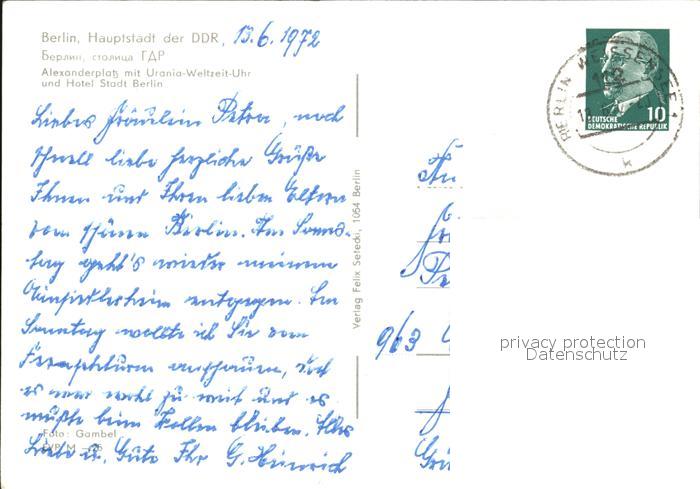 Berlin, Hauptstadt der DDR, 13.6.1972
Берлин, столица ГДР
Alexanderplatz mit Urania-Weltzeit-Uhr
und Hotel Stadt Berlin
Liebes Fräulein Petra, noch
schnell liebe herzliche Grüße
Ihnen und Ihren lieben Eltern
vom schönen Berlin. Am Sonn-
tag geht's wieder meinem
Einsiedlerheim entgegen. Am
Sonntag wollte ich Sie vom
Fernsehturm anschauen, doch
es war wohl zu weit und es
mußte beim Wollen bleiben. Alles
Liebe u. Gute Ihr G. Heinrich
Foto: Gambel
Verlag Felix Setecki, 1054 Berlin
BERLIN WEISSENSEE 1
112
k
10
DEUTSCHE
DEMOKRATISCHE REPUBLIK
963
privacy protection
Datenschutz